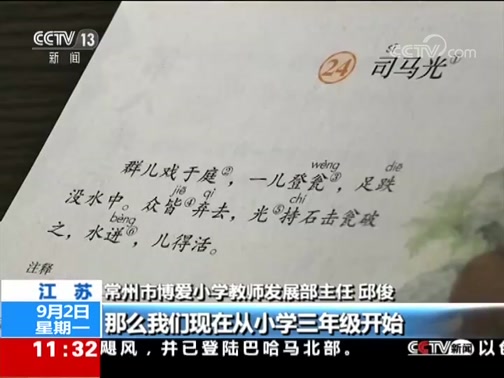 CCTV 13
新闻
CCTV.com
24 司马光①
sī
群儿戏于庭②，一儿登瓮③，足跌
wèng diē
没水中。众皆④弃去，光⑤持石击瓮破
jiē qì chí
之，水迸⑥，儿得活。
bèng
注释
江苏
常州市博爱小学教师发展部主任 邱俊
9月2日
星期一
那么我们现在从小学三年级开始
11:32
飓风，并已登陆巴哈马北部。
CCTV新闻
以色